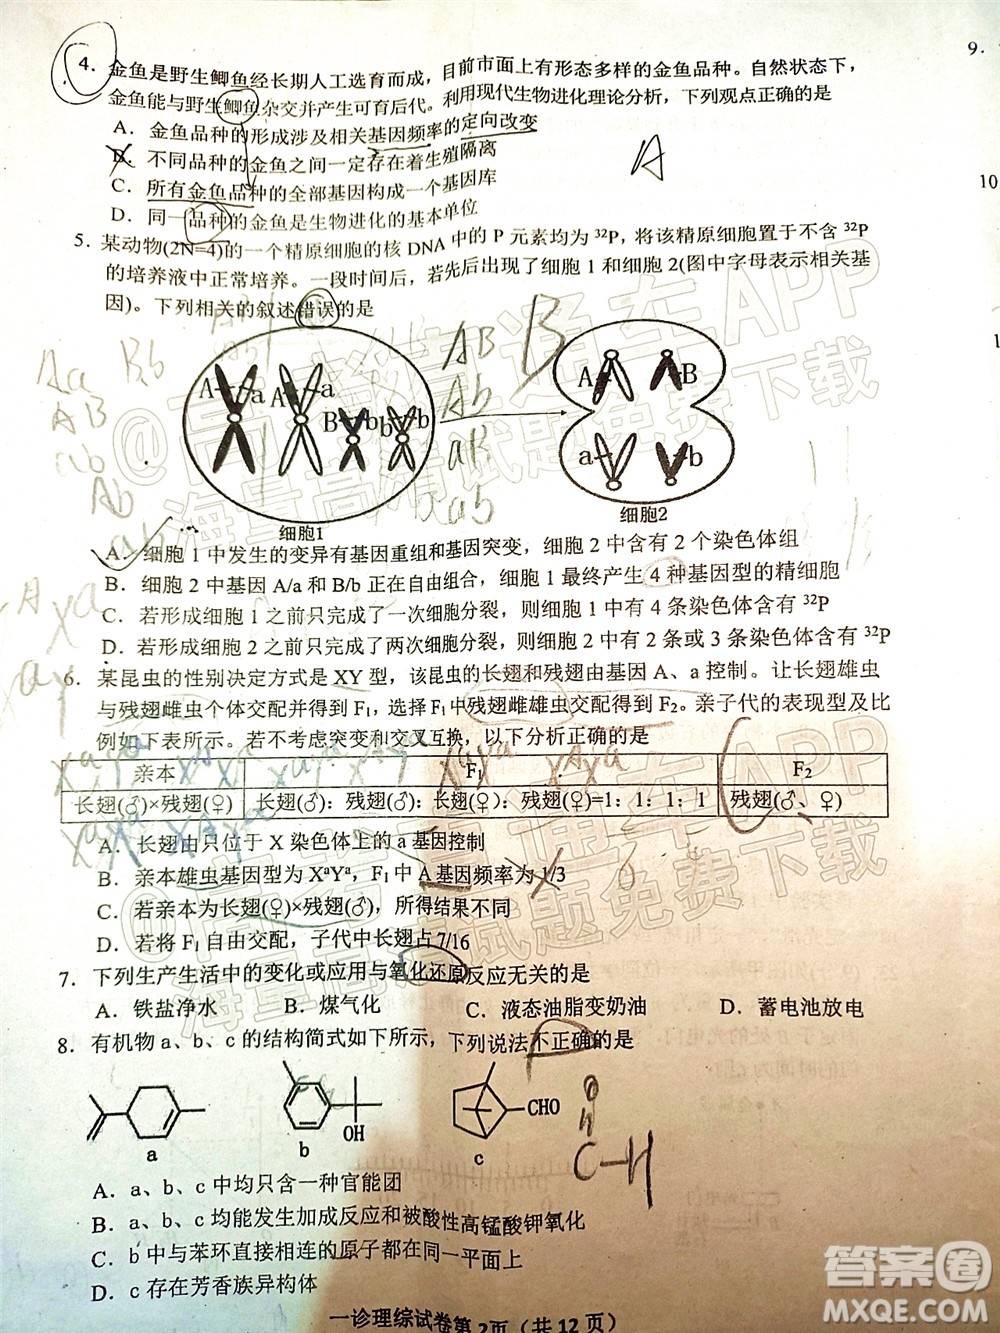 4．金鱼是野生鲫鱼经长期人工选育而成，目前市面上有形态多样的金鱼品种。自然状态下，
金鱼能与野生鲫鱼杂交并产生可育后代。利用现代生物进化理论分析，下列观点正确的是
A．金鱼品种的形成涉及相关基因频率的定向改变
B．不同品种的金鱼之间一定存在着生殖隔离
C．所有金鱼品种的全部基因构成一个基因库
D．同一品种的金鱼是生物进化的基本单位
A
5．某动物(2N=4)的一个精原细胞的核 DNA 中的 P 元素均为 ³²P，将该精原细胞置于不含 ³²P
的培养液中正常培养。一段时间后，若先后出现了细胞 1 和细胞 2(图中字母表示相关基
因)。下列相关的叙述错误的是
A a A a B b b
细胞1
A B a b
细胞2
Aa Bb
AB
ab
Ab
aB
AB
Ab
aB
ab
B
A．细胞 1 中发生的变异有基因重组和基因突变，细胞 2 中含有 2 个染色体组
B．细胞 2 中基因 A/a 和 B/b 正在自由组合，细胞 1 最终产生 4 种基因型的精细胞
C．若形成细胞 1 之前只完成了一次细胞分裂，则细胞 1 中有 4 条染色体含有 ³²P
D．若形成细胞 1 之前只完成了两次细胞分裂，则细胞 2 中有 2 条或 3 条染色体含有 ³²P
6．某昆虫的性别决定方式是 XY 型，该昆虫的长翅和残翅由基因 A、a 控制。让长翅雄虫
与残翅雌虫个体交配并得到 F₁，选择 F₁中残翅雌雄虫交配得到 F₂。亲子代的表现型及比
例如下表所示。若不考虑突变和交叉互换，以下分析正确的是
亲本 F₁ F₂
长翅(♂)×残翅(♀) 长翅(♂)：残翅(♂)：长翅(♀)：残翅(♀)=1：1：1：1 残翅(♂、♀)
A．长翅由只位于 X 染色体上的 a 基因控制
B．亲本雄虫基因型为 XᵃYᵃ，F₁ 中 A 基因频率为 1/3
C．若亲本为长翅(♀)×残翅(♂)，所得结果不同
D．若将 F₁ 自由交配，子代中长翅占 7/16
7．下列生产生活中的变化或应用与氧化还原反应无关的是
A．铁盐净水 B．煤气化 C．液态油脂变奶油 D．蓄电池放电
8．有机物 a、b、c 的结构简式如下所示，下列说法不正确的是
D
a
OH
b
CHO
c
O
C-H
A．a、b、c 中均只含一种官能团
B．a、b、c 均能发生加成反应和被酸性高锰酸钾氧化
C．b 中与苯环直接相连的原子都在同一平面上
D．c 存在芳香族异构体
一诊理综试卷第 2页（共 12 页）
9．
10
1
@高考直通车APP
海量高清试题免费下载
@高考直通车APP
海量高清试题免费下载
答案圈
MXQE.COM